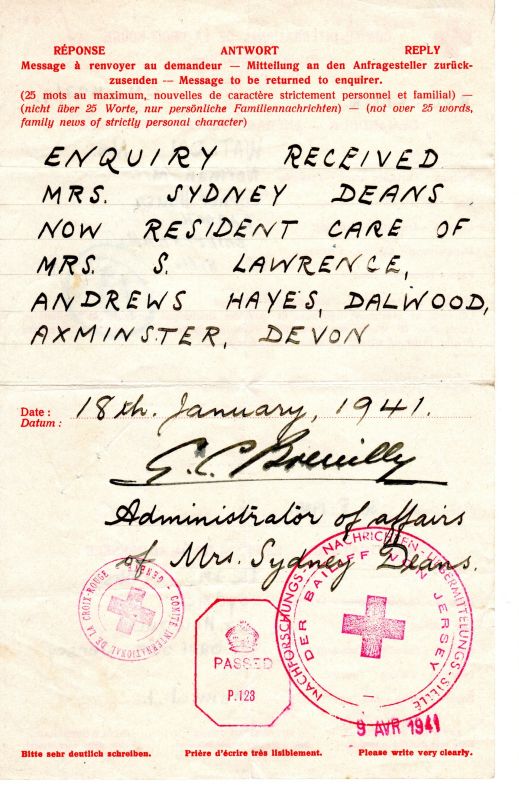 RÉPONSE ANTWORT REPLY
Message à renvoyer au demandeur — Mitteilung an den Anfragesteller zurück-
zusenden — Message to be returned to enquirer.
(25 mots au maximum, nouvelles de caractère strictement personnel et familial) —
(nicht über 25 Worte, nur persönliche Familiennachrichten) — (not over 25 words,
family news of strictly personal character)
ENQUIRY RECEIVED
MRS. SYDNEY DEANS
NOW RESIDENT CARE OF
MRS. S. LAWRENCE,
ANDREWS HAYES, DALWOOD,
AXMINSTER, DEVON
Date : 18th. January, 1941.
Datum :
G. C.
Administrator of affairs
of Mrs. Sydney Deans.
COMITÉ INTERNATIONAL DE LA CROIX-ROUGE - GENÈVE
PASSED
P.123
NACHFORSCHUNGS- NACHRICHTEN-UEBERMITTELUNGS-STELLE
DER BAILIFF VON JERSEY
9 AVR 1941
Bitte sehr deutlich schreiben. Prière d'écrire très lisiblement. Please write very clearly.